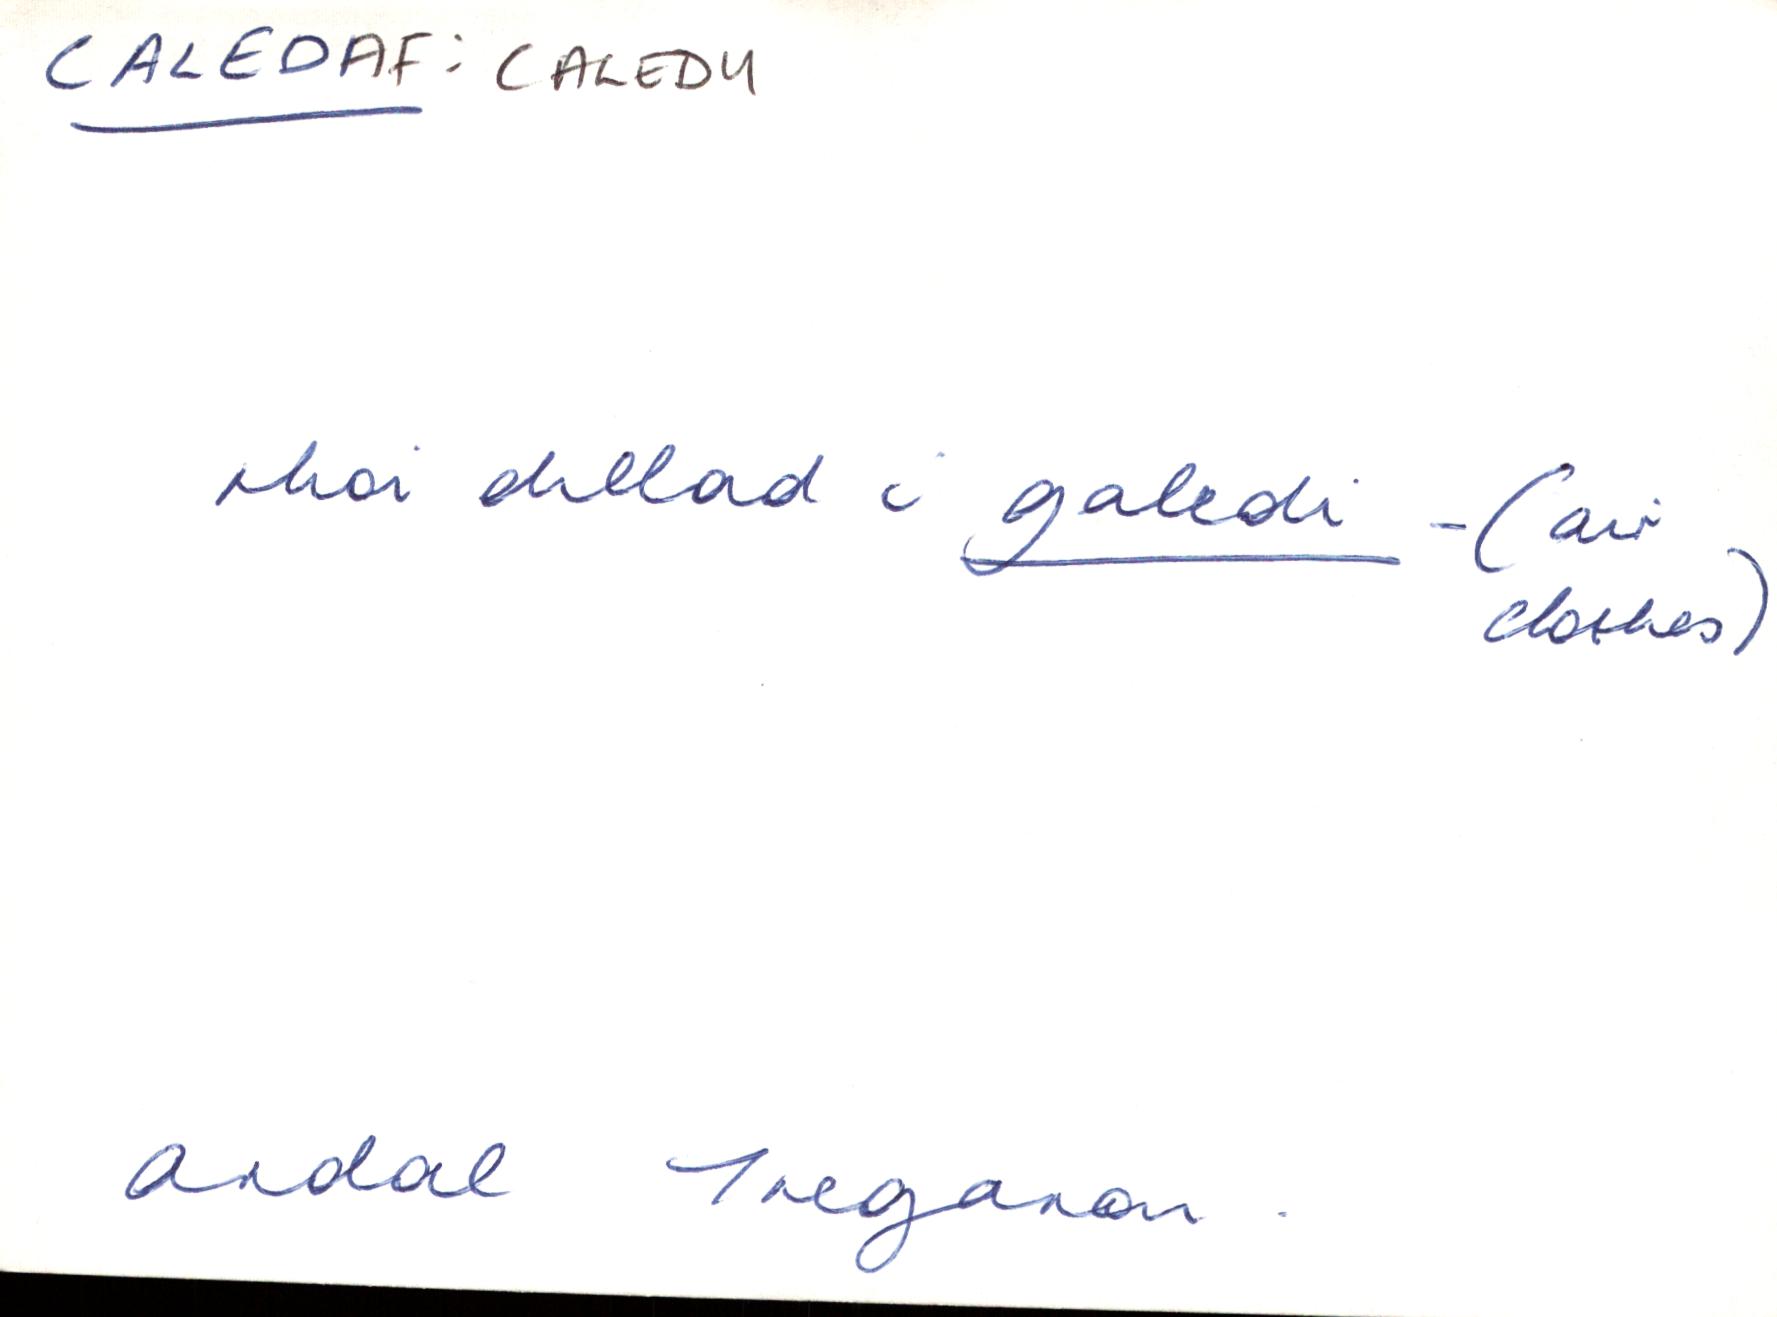 CALEDAF: CALEDU
rhoi dillad i galedi - (air
clothes)
ardal Tregaron.